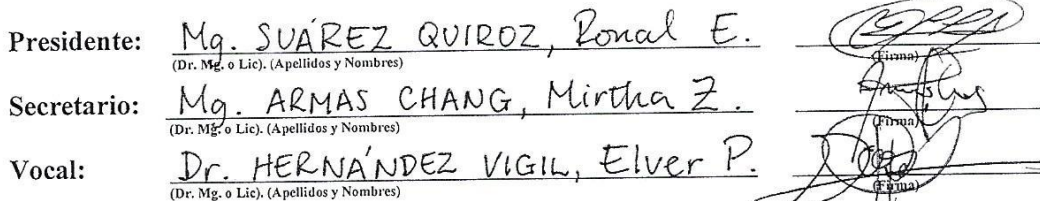 Presidente: Mg. SUÁREZ QUIROZ, Ronal E.
(Dr. Mg. o Lic). (Apellidos y Nombres) (Firma)
Secretario: Mg. ARMAS CHANG, Mirtha Z.
(Dr. Mg. o Lic). (Apellidos y Nombres) (Firma)
Vocal: Dr. HERNÁNDEZ VIGIL, Elver P.
(Dr. Mg. o Lic). (Apellidos y Nombres) (Firma)